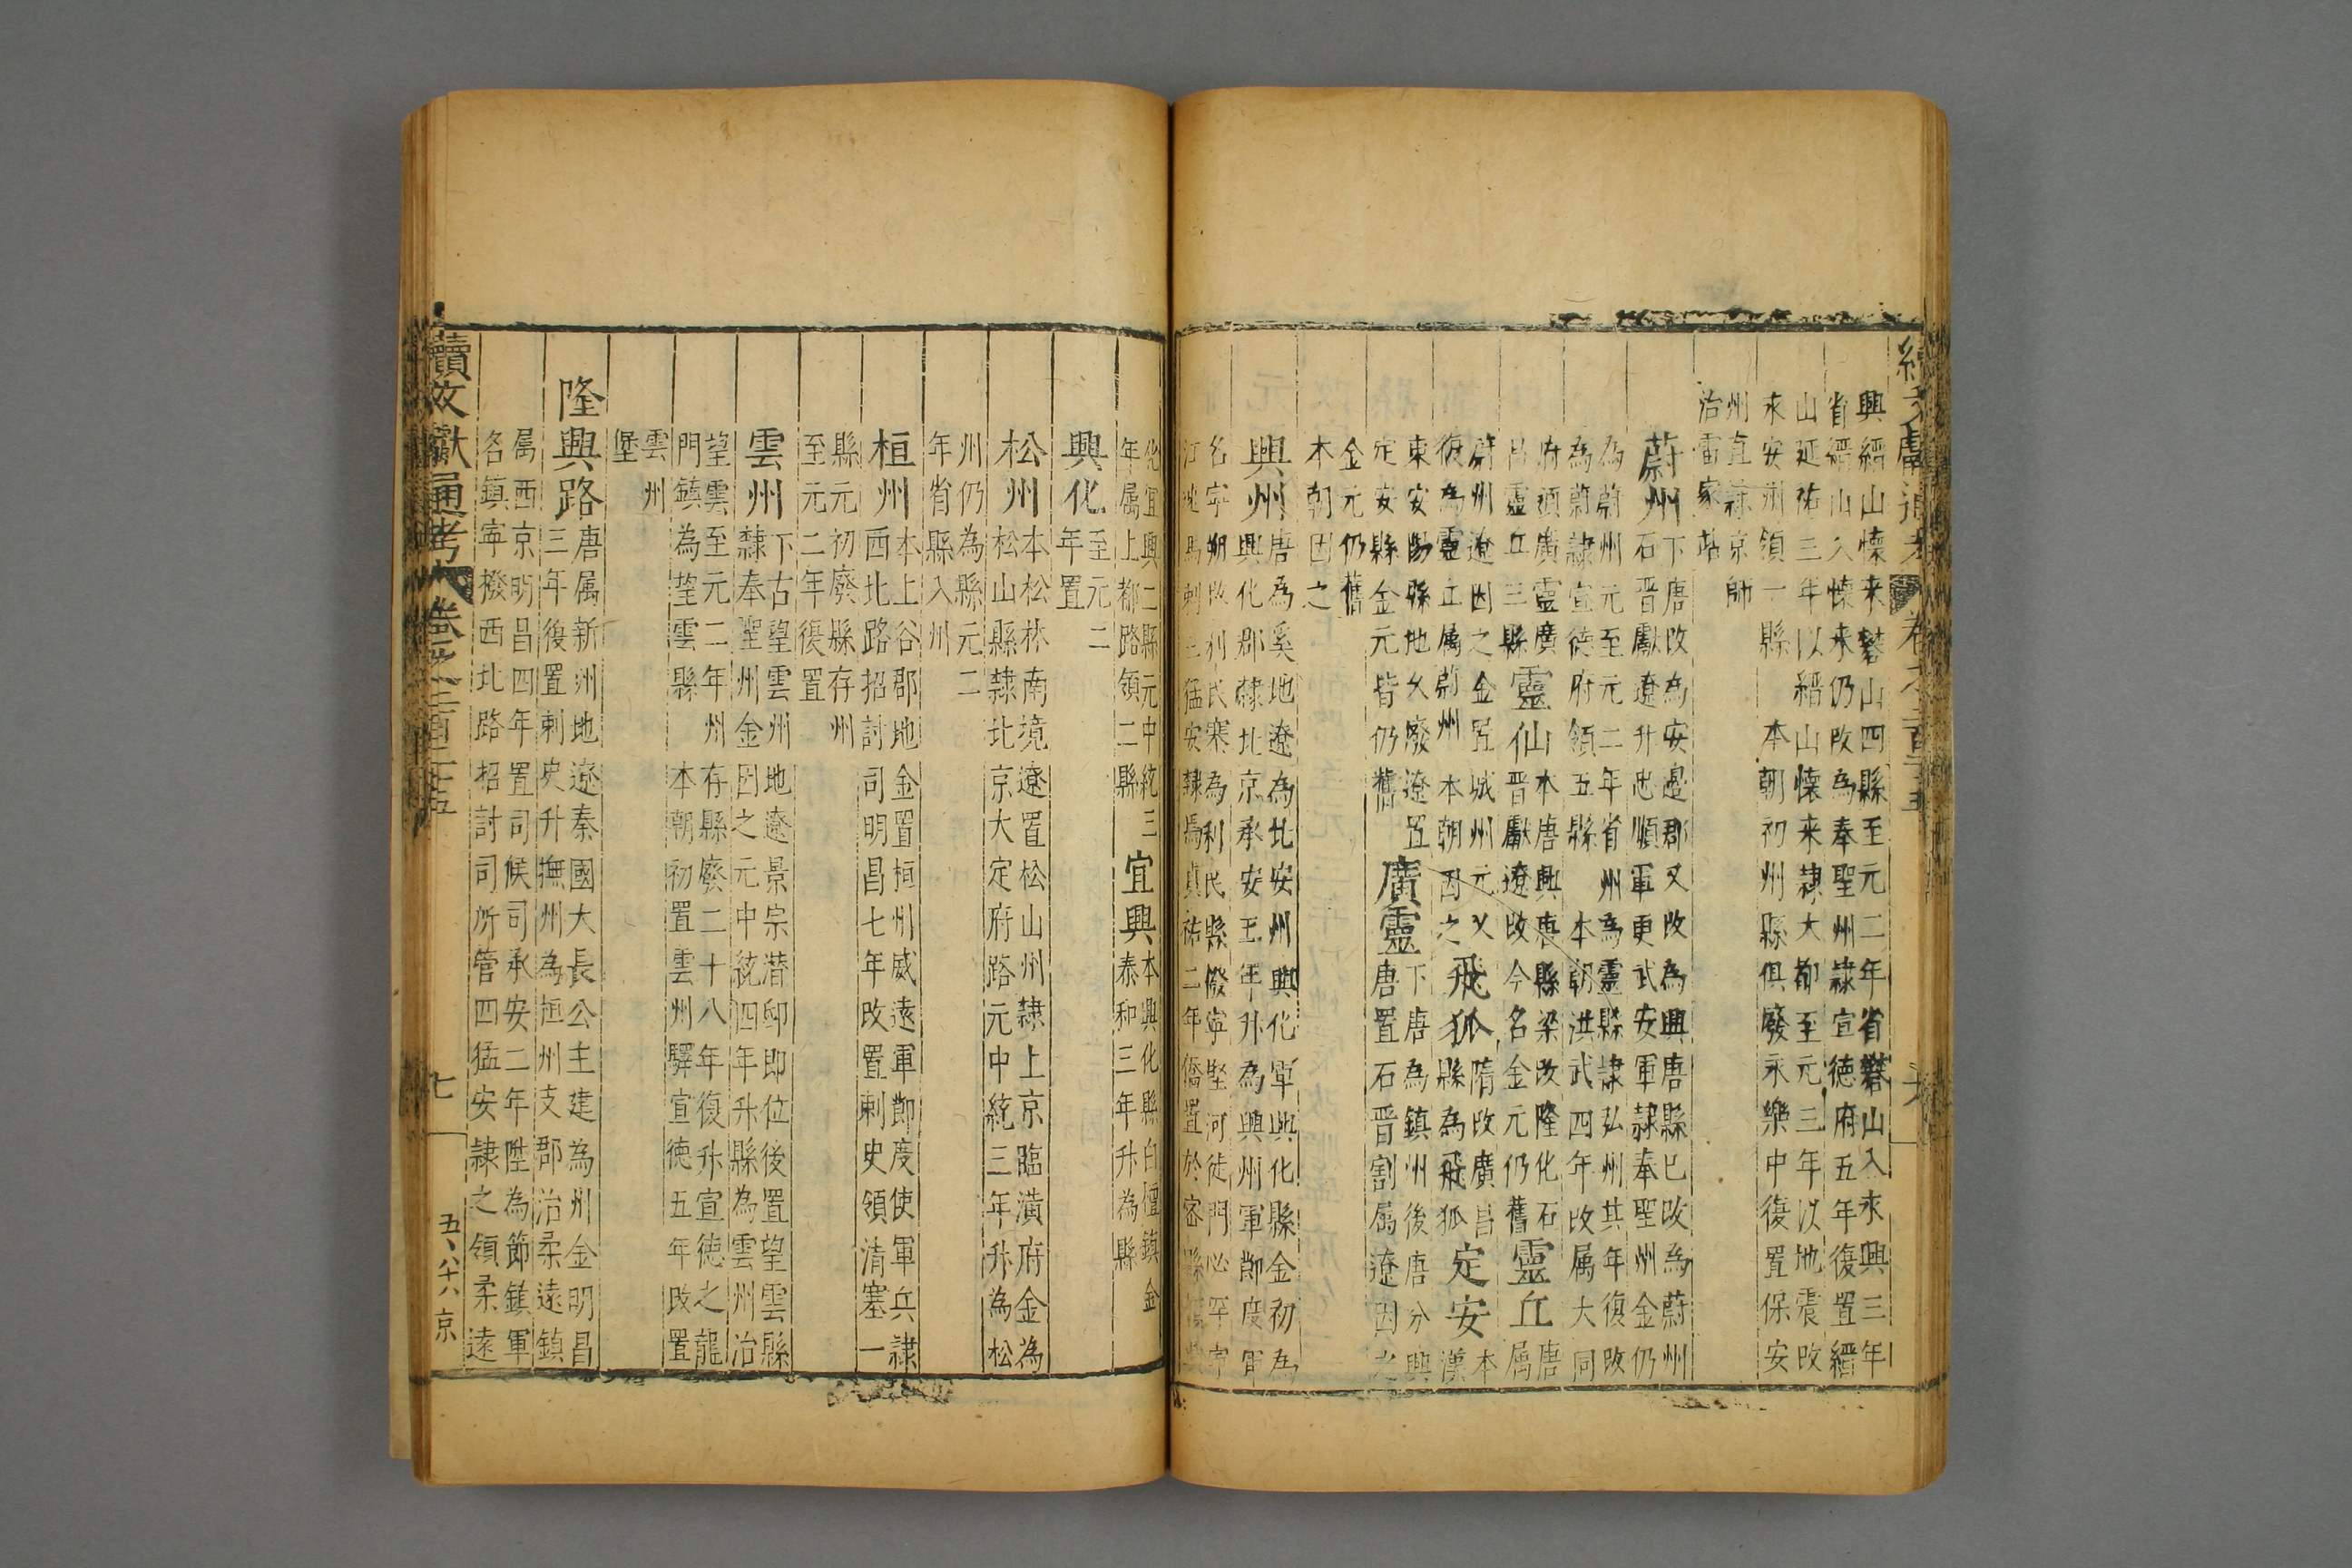 興縉山懷來礬山四縣至元二年省礬山入永興三年
省縉山入懷來仍改為奉聖州隸宣德府五年復置縉
山延祐三年以縉山懷來隸大都至元三年以地震改
來安州領一縣 本朝初州縣俱廢永樂中復置保安
州直隸京師
治雷家站
蔚州
下唐改為安邊郡又改為興唐縣已改為蔚州
石晉獻遼升忠順軍更武安軍隸奉聖州金仍
為蔚州元至元二年省州為靈縣隸弘州其年復改
為蔚隸宣德府領五縣 本朝洪武四年改属大同
府洒廣靈廣
昌靈丘三縣
靈仙
本唐興唐縣梁改隆化石
晉獻遼改今名金元仍舊
靈丘
唐属
蔚州遼因之金置城州元乂
復為靈丘属蔚州 本朝因之
飛狐
隋改廣昌
縣為飛狐
定安
本漢
東安陽縣地乂廢遼置
定安縣金元皆仍舊
廣靈
下唐為鎮州後唐分興
唐置石晉割属遼因之
金元仍舊
本朝因之
興州
唐為奚地遼為北安州興化軍興化縣金初為
興化郡隸北京承安五年升為興州軍節度軍
名寧朔改利民寨為利民縣廢寧堅河徒門必罕寧
二猛安隸焉貞祐二年僑置於密縣
化宜興二縣元中統三
年属上都路領二縣
宜興
本興化縣白檀鎮金
泰和三年升為縣
興化
至元二
年置
松州
本松林南境遼置松山州隸上京臨潢府金為
松山縣隸北京大定府路元中統三年升為松
州仍為縣元二
年省縣入州
桓州
本上谷郡地金置桓州威遠軍節度使軍兵隸
西北路招討司明昌七年改置刺史領清塞一
縣元初廢縣存州
至元二年復置
雲州
下古望雲州地遼景宗潜邸即位後置望雲縣
隸奉聖州金因之元中統四年升縣為雲州治
望雲至元二年州存縣廢二十八年復升宣德之龍
門鎮為望雲縣 本朝初置雲州驛宣德五年改置
雲州
堡
隆興路
唐属新州地遼秦國大長公主建為州金明昌
三年復置刺史升撫州為桓州支郡治柔遠鎮
属西京明昌四年置司候司承安二年陞為節鎮軍
各鎮寧撥西北路招討司所管四猛安隸之領柔遠
續文獻通考 卷之二百二十五
七
五、八十六 京